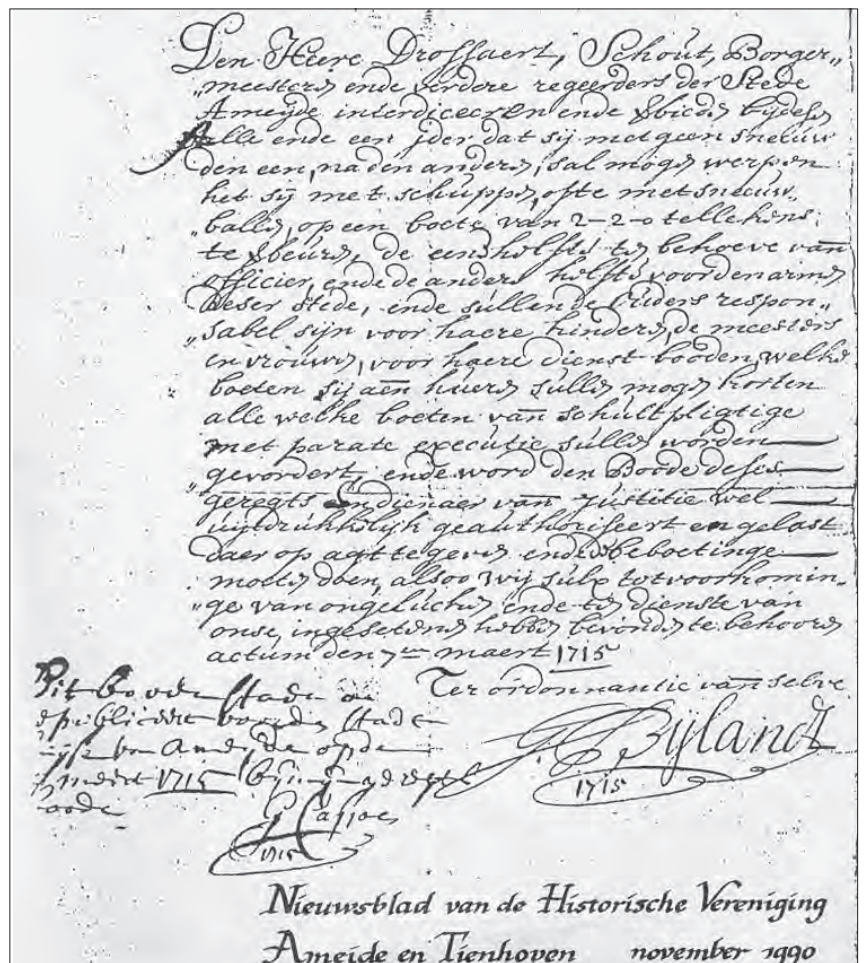 Den Heere Drossaert, Schout, Borger„
„meesters ende verdere regeerders der Stede
Ameyde interdiceeren ende v̄bieden bijdesen
Alle ende een jder dat sij met geen sneeuw
den een, na den anderen, sal mogen werpen
het sij met schuppen, ofte met sneeuw„
„ballen, op een boete van 2-2-0 tellekens
te v̄beuren, de eene helfte ten behoeve van
officier, ende de andere helfte voor den armen
deser stede, ende sullen de ouders respon„
„sabel sijn voor haere kinderen, de meesters
en vrouwen, voor haere dienst booden, welke
boeten sij aen huere sullen mogen korten
alle welke boeten van schultpligtige
met parate executie sullen worden
„gevordert, ende word den Boode deses
geregts en dienaer van Justitie wel
uijtdrukkelijk geauthoriseert en gelast
daer op agt te geven ende beboetinge
moeten doen, alsoo wij sulx tot voorkomin„
„ge van ongelucken ende ten dienste van
onse ingesetenen hebben bevonden te behooren
actum den 7en maert 1715
Ter ordonnantie van selve
Bijlandt
1715
Dit
gepubliceert
Ameyde op de
maert 1715
boode
1715
Nieuwsblad van de Historische Vereniging
Ameide en Tienhoven november 1990